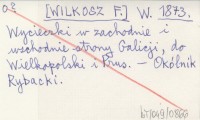 [WILKOSZ F.] W. 1873.
Wycieczki w zachodnie i
wschodnie strony Galicji, do
Wielkopolski i Prus. – Okólnik
Rybacki.